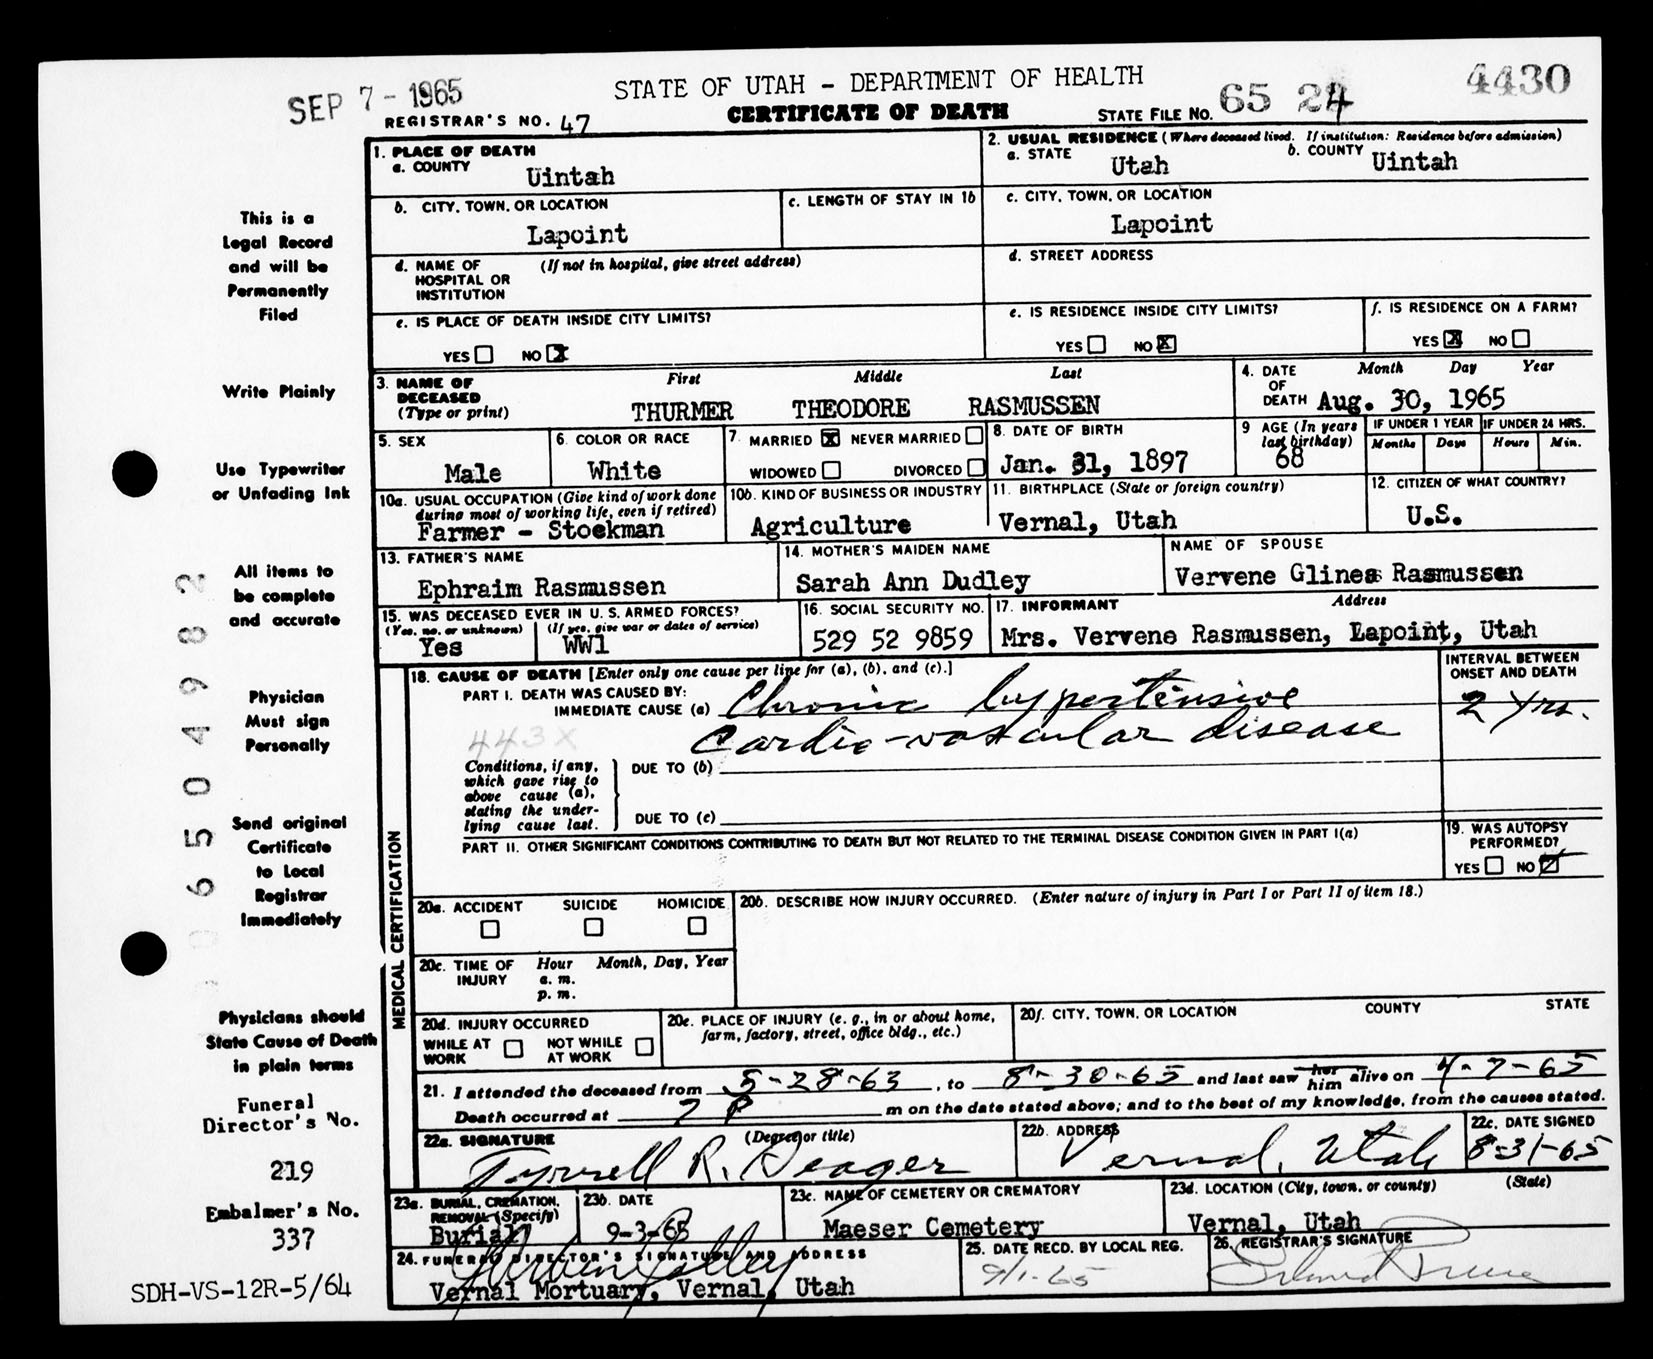 SEP 7 - 1965
STATE OF UTAH - DEPARTMENT OF HEALTH
4430
REGISTRAR'S NO. 47
CERTIFICATE OF DEATH
STATE FILE NO. 65 24
1. PLACE OF DEATH
a. COUNTY Uintah
2. USUAL RESIDENCE (Where deceased lived. If institution: Residence before admission)
a. STATE Utah b. COUNTY Uintah
b. CITY, TOWN, OR LOCATION
Lapoint
c. LENGTH OF STAY IN 1b
c. CITY, TOWN, OR LOCATION
Lapoint
d. NAME OF HOSPITAL OR INSTITUTION (If not in hospital, give street address)
d. STREET ADDRESS
e. IS PLACE OF DEATH INSIDE CITY LIMITS?
YES NO X
e. IS RESIDENCE INSIDE CITY LIMITS?
YES NO X
f. IS RESIDENCE ON A FARM?
YES X NO
3. NAME OF DECEASED (Type or print)
First Middle Last
THURMER THEODORE RASMUSSEN
4. DATE OF DEATH Month Day Year
Aug. 30, 1965
5. SEX
Male
6. COLOR OR RACE
White
7. MARRIED X NEVER MARRIED
WIDOWED DIVORCED
8. DATE OF BIRTH
Jan. 31, 1897
9 AGE (In years last birthday)
68
IF UNDER 1 YEAR
Months Days
IF UNDER 24 HRS.
Hours Min.
10a. USUAL OCCUPATION (Give kind of work done during most of working life, even if retired)
Farmer - Stockman
10b. KIND OF BUSINESS OR INDUSTRY
Agriculture
11. BIRTHPLACE (State or foreign country)
Vernal, Utah
12. CITIZEN OF WHAT COUNTRY?
U.S.
13. FATHER'S NAME
Ephraim Rasmussen
14. MOTHER'S MAIDEN NAME
Sarah Ann Dudley
NAME OF SPOUSE
Vervene Glines Rasmussen
15. WAS DECEASED EVER IN U.S. ARMED FORCES?
(Yes, no, or unknown) (If yes, give war or dates of service)
Yes WW1
16. SOCIAL SECURITY NO.
529 52 9859
17. INFORMANT Address
Mrs. Vervene Rasmussen, Lapoint, Utah
MEDICAL CERTIFICATION
18. CAUSE OF DEATH [Enter only one cause per line for (a), (b), and (c).]
INTERVAL BETWEEN ONSET AND DEATH
PART I. DEATH WAS CAUSED BY:
IMMEDIATE CAUSE (a) Chronic hypertensive
cardio-vascular disease
2 yrs.
443X
Conditions, if any, which gave rise to above cause (a), stating the underlying cause last.
DUE TO (b)
DUE TO (c)
PART II. OTHER SIGNIFICANT CONDITIONS CONTRIBUTING TO DEATH BUT NOT RELATED TO THE TERMINAL DISEASE CONDITION GIVEN IN PART I(a)
19. WAS AUTOPSY PERFORMED?
YES NO
20a. ACCIDENT SUICIDE HOMICIDE
20b. DESCRIBE HOW INJURY OCCURRED. (Enter nature of injury in Part I or Part II of item 18.)
20c. TIME OF INJURY Hour Month, Day, Year
a. m.
p. m.
20d. INJURY OCCURRED
WHILE AT WORK NOT WHILE AT WORK
20e. PLACE OF INJURY (e. g., in or about home, farm, factory, street, office bldg., etc.)
20f. CITY, TOWN, OR LOCATION COUNTY STATE
21. I attended the deceased from 5-28-63, to 8-30-65 and last saw her him alive on 4-7-65
Death occurred at 7 P m on the date stated above; and to the best of my knowledge, from the causes stated.
22a. SIGNATURE (Degree or title)
Tyrrell R. Seager
22b. ADDRESS
Vernal, Utah
22c. DATE SIGNED
8-31-65
23a. BURIAL, CREMATION, REMOVAL (Specify)
Burial
23b. DATE
9-3-65
23c. NAME OF CEMETERY OR CREMATORY
Maeser Cemetery
23d. LOCATION (City, town, or county) (State)
Vernal, Utah
24. FUNERAL DIRECTOR'S SIGNATURE AND ADDRESS
Vernal Mortuary, Vernal, Utah
25. DATE RECD. BY LOCAL REG.
9/1-65
26. REGISTRAR'S SIGNATURE
This is a
Legal Record
and will be
Permanently
Filed
Write Plainly
Use Typewriter
or Unfading Ink
All items to
be complete
and accurate
Physician
Must sign
Personally
Send original
Certificate
to Local
Registrar
Immediately
Physicians should
State Cause of Death
in plain terms
Funeral
Director's No.
219
Embalmer's No.
337
SDH-VS-12R-5/64
6504982